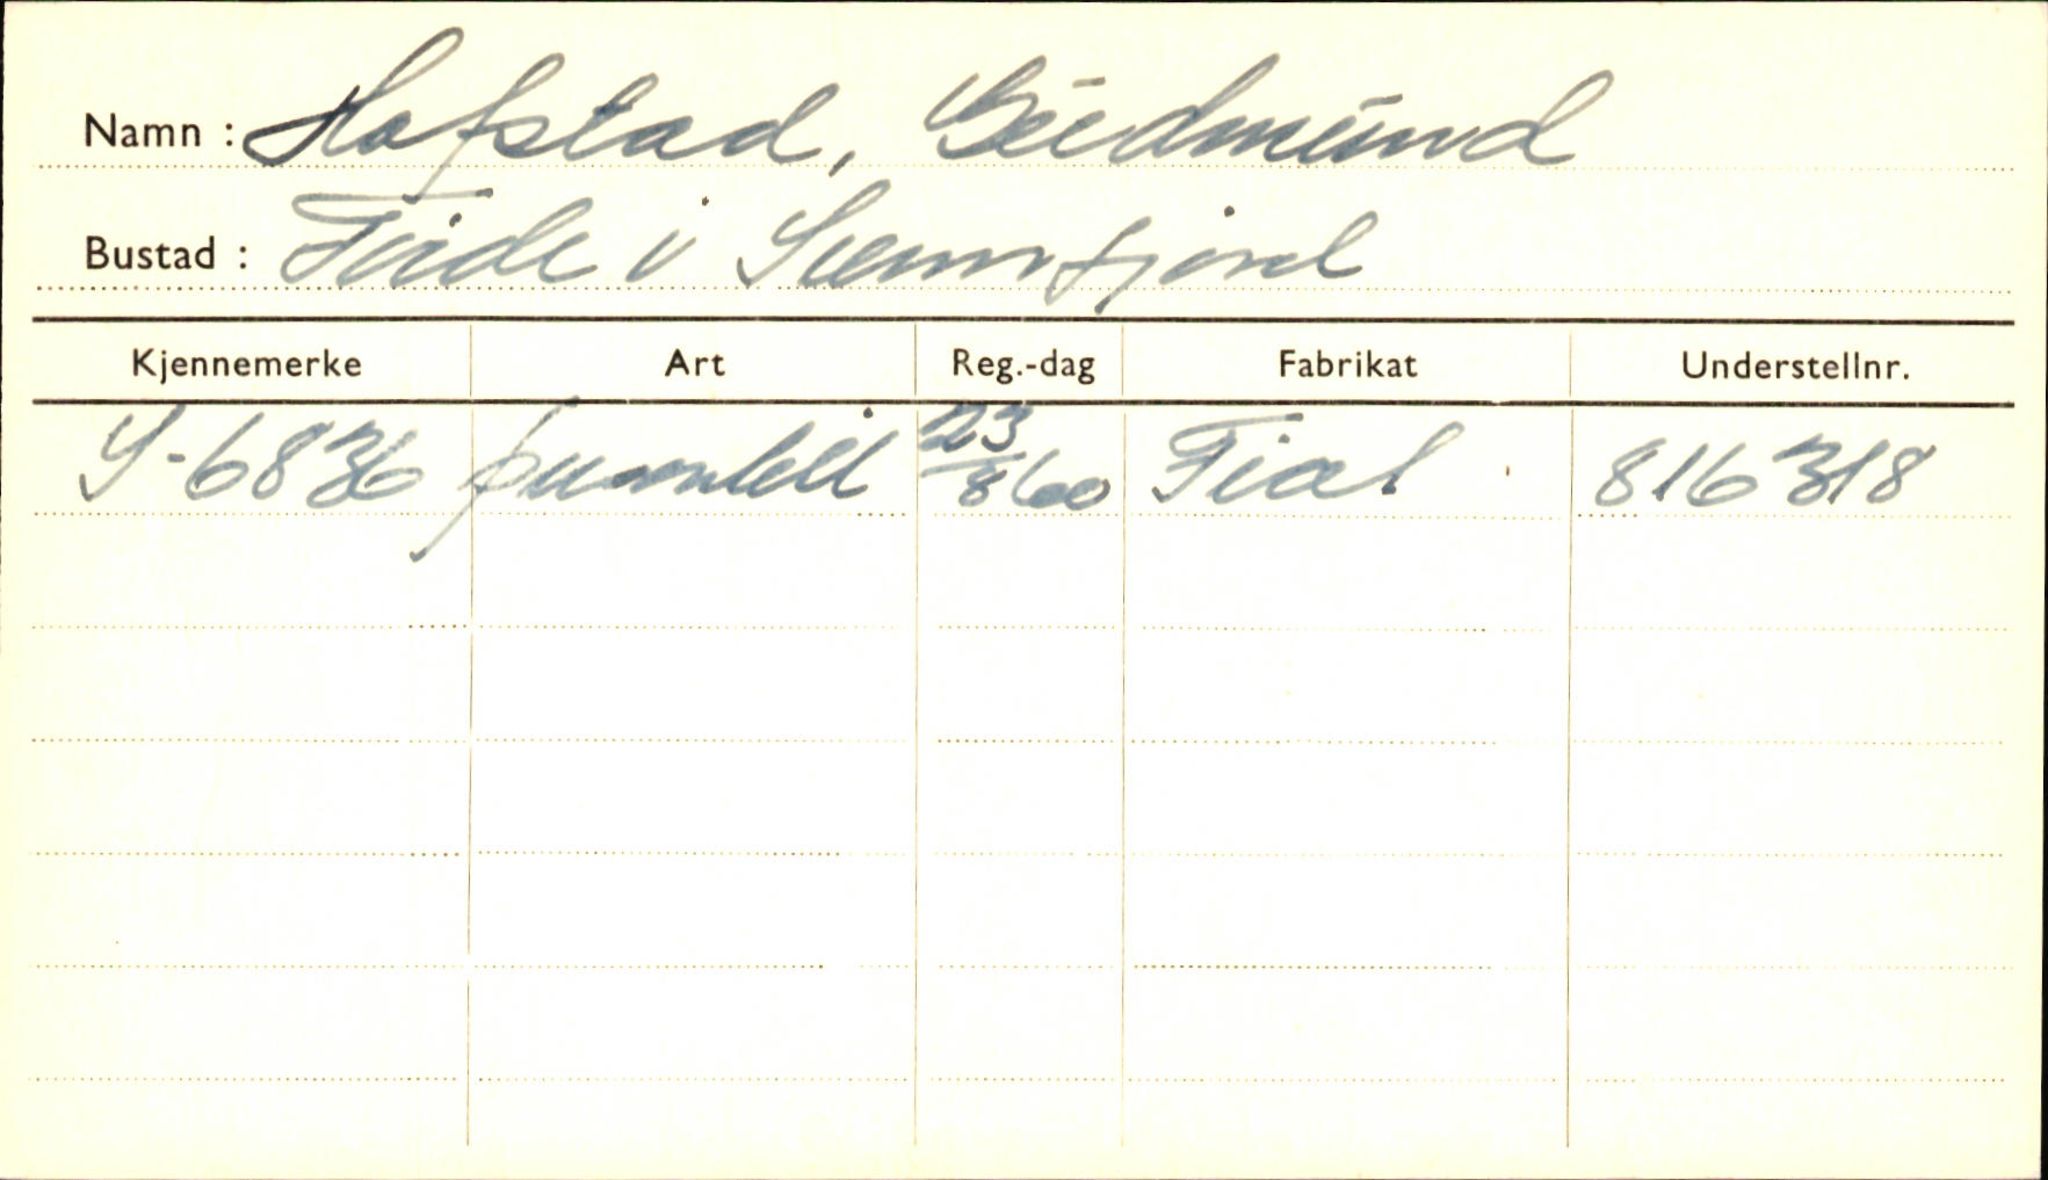 Namn : Hofstad, Gudmund
Bustad : Førde i Sunnfjord
Kjennemerke Art Reg.-dag Fabrikat Understellnr.
S-6836 personbil 23/8 60 Fiat 816318